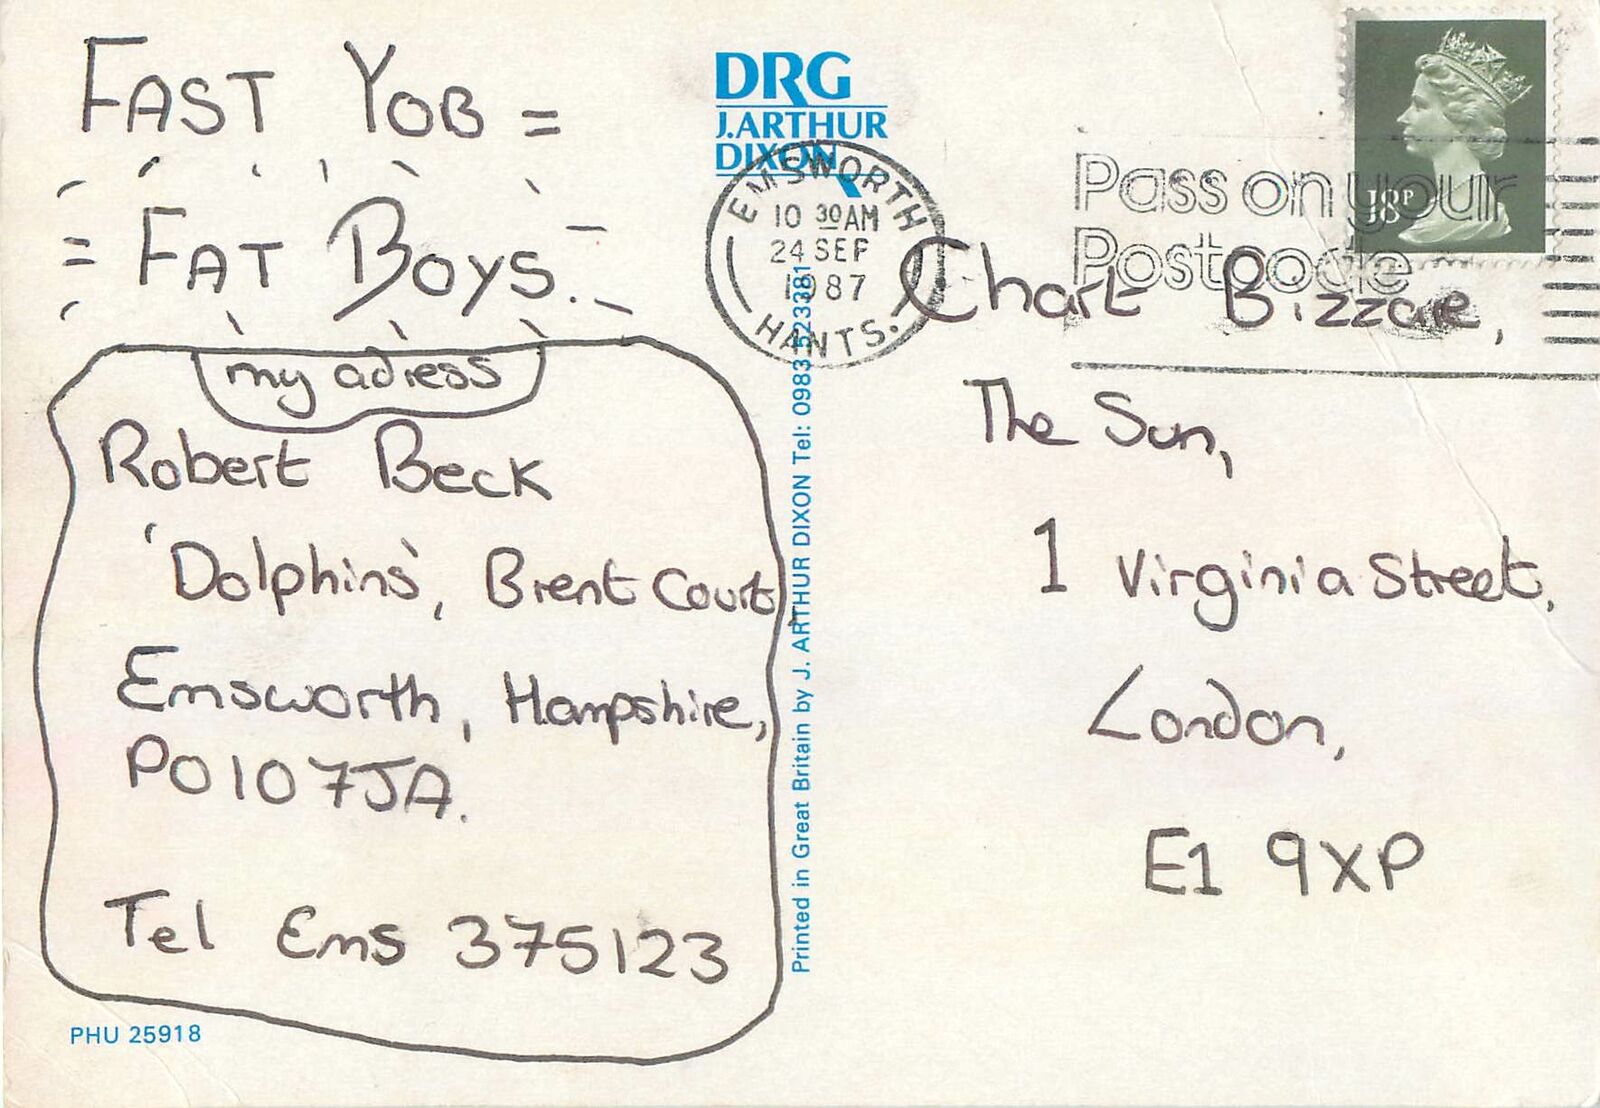 FAST YOB =
= FAT BOYS.
my adress
Robert Beck
'Dolphins', Brent Court,
Emsworth, Hampshire,
PO107JA.
Tel Ems 375123
PHU 25918
DRG
J.ARTHUR
DIXON
Printed in Great Britain by J. ARTHUR DIXON Tel: 0983 523381
EMSWORTH
10 30AM
24 SEP
1987
HANTS.
Pass on your
Postcode
18P
Chart Bizzare,
The Sun,
1 Virginia Street,
London,
E1 9XP